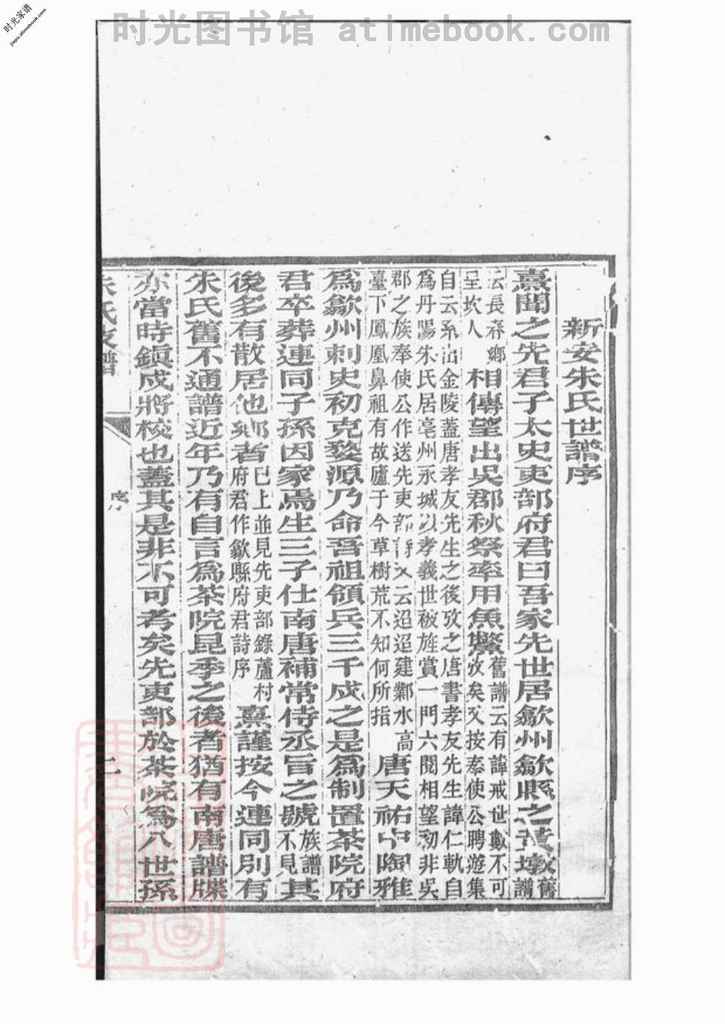 时光图书馆 atimebook.com
时光家谱
新安朱氏世譜序
熹聞之先君子太史吏部府君曰吾家先世居歙州歙縣之黄墩舊譜
云長春鄉呈坎人相傳望出吳郡秋祭率用魚鱉舊譜云有諱戒世數不可攷矣又按奉使公聘遊集
自云系出金陵蓋唐孝友先生之後攷之唐書孝友先生諱仁軌自
爲丹陽朱氏居亳州永城以孝義世被旌賞一門六闕相望初非吳
郡之族奉使公作送先吏部詩又云迢迢建鄴水高
臺下鳳凰鼻祖有故廬于今草樹荒不知何所指唐天祐中陶雅
爲歙州刺史初克婺源乃命吾祖領兵三千戍之是爲制置茶院府
君卒葬連同子孫因家焉生三子仕南唐補常侍丞旨之號族譜不見其
後多有散居他郡者已上並見先吏部錄蘆村府君作歙縣府君詩序熹謹按今連同別有
朱氏舊不通譜近年乃有自言爲茶院昆季之後者猶有南唐譜牒
亦當時鎮戍將校也蓋其是非不可考矣先吏部於茶院爲八世孫
朱氏支譜
序
二